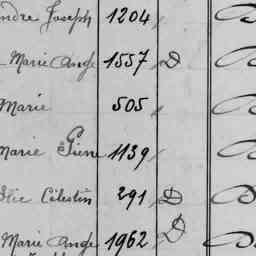 ndre Joseph 1204
Marie Ange 1557 D
Marie 505
Marie Pierre 1139
Célestin 291 D
Marie Ange 1962 D